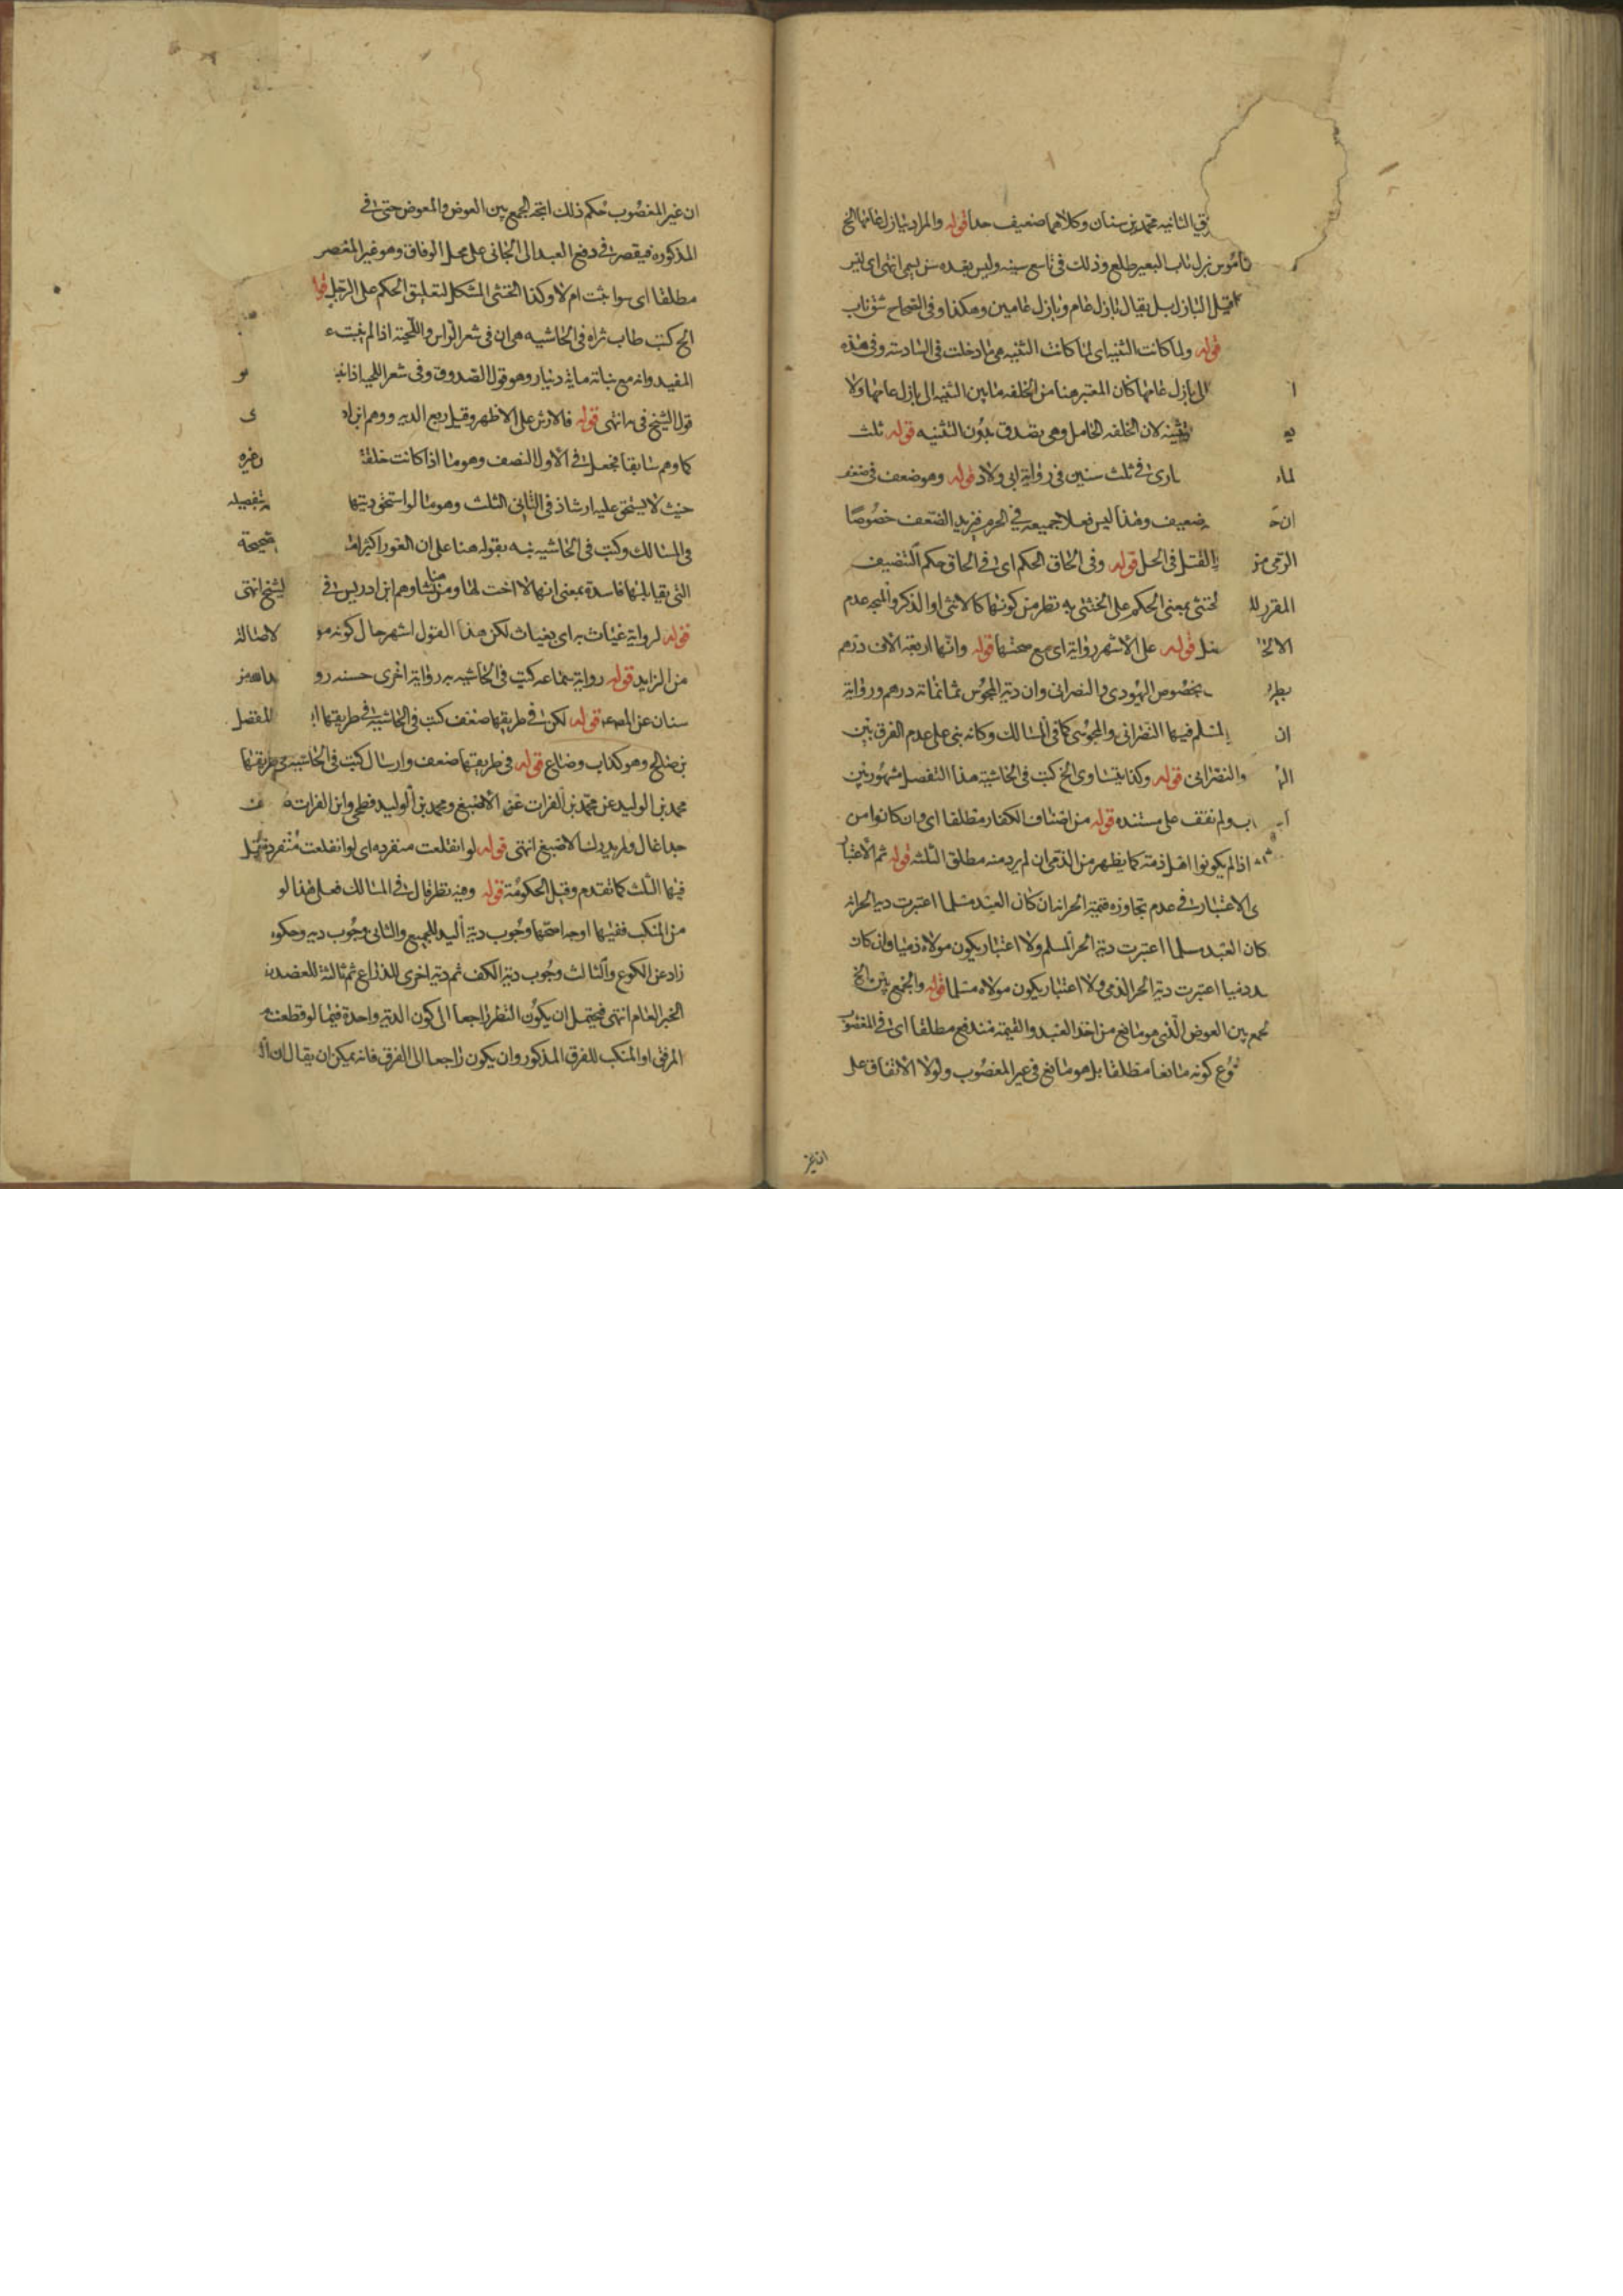 في الثانيه محمد بن سنان وكلاهما ضعيف جدا قوله والمراد ببازل عامها الخ
بزل ناب البعير طلع وذلك في تاسع سنيه وليس بعده سن يسمى انتهى اى
البازل بل يقال بازل عام وبازل عامين وهكذا وفي الصحاح شق ناب
قوله ولما كانت الثنيه اى لما كانت الثنيه هي ما دخلت في السادسة وفي هذه
الى بازل عامها كان المعتبر هنا من الخلفه ما بين الثنيه الى بازل عامها ولا
لان الخلفه الحامل وهى بصدق بدون الثنيه قوله ثلث
في ثلث سنين في رواية ابى ولاد قوله وهو ضعف في
ضعيف وهذا ليس فعلا جميعه في الحرم فيزيد الضعف خصوصا
الرمى من القتل في الحل قوله وفي الحاق الحكم اى في الحاق حكم التضعيف
المقرر بمعنى الحكم على الخنثى به نظر من كونها كالانثى او الذكر والمتجه عدم
قوله على الاشهر رواية اى مع صحتها قوله وانها اربعة الاف درهم
بخصوص اليهودى والنصرانى وان دية المجوس ثمانمائة درهم ورواية
ان المسلم فيها النصرانى والمجوسى كما في المسالك وكانه بنى على عدم الفرق بين
والنصرانى قوله وكذا يتساوى الخ كتب في الحاشية هذا التفصيل مشهور بين
ولم نقف على مستنده قوله من اصناف الكفار مطلقا اى وان كانوا من
اذا لم يكونوا اهل ذمة كما يظهر من الذمى ان لم يرد منه مطلق الثلثه قوله ثم الاعتبار
الاعتبار في عدم تجاوزه قيمة الحر انه ان كان العبد مسلما اعتبرت ديه الحر انه
كان العبد مسلما اعتبرت دية الحر المسلم ولا اعتبار بكون مولاه ذميا وان كان
ذميا اعتبرت دية الحر الذمى ولا اعتبار بكون مولاه مسلما قوله والجمع بين الخ
بين العوض الذى هو مانع من اخذ العبد والقيمة مندفع مطلقا اى في المغصوب
كونه مانعا مطلقا بل هو مانع في غير المغصوب ولولا الاتفاق على
ان غير
ان غير المغصوب حكم ذلك اتجه الجمع بين العوض والمعوض حتى في
المذكوره فيقصر في دفع العبد الى الجانى على محل الوفاق وهو غير المغصوب
مطلقا اى سواء ثبت ام لا وكذا الخنثى المشكل لتعليق الحكم على الرجل
الخ كتب طاب ثراه في الحاشيه هى ان في شعر الراس واللحية اذا لم ينبت
المفيد وانه مع نباته ماية دينار وهو قول الصدوق وفي شعر اللحيه اذا
قول الشيخ في انتهى قوله فالارش على الاظهر وقيل ربع الديه ووهم ابن
كما وهم سابقا فجعل في الاول النصف وهو ما اذا كانت خلقة وغيره
حيث لا يستحق عليه ارشا ذ في الثانى الثلث وهو ما لو استحق ديتها بتفصيله
في المسالك وكتب في الحاشيه نبه بقوله هنا على ان العور اكثر صحيحة
التى يقابلها فاسدة بمعنى انها لا اخت لها ومن هنا وهم ابن ادريس في الشيخ انتهى
قوله لرواية غياث به اى بغياث لكن هذا القول اشهر حال كونه لاصالة
من الزايد قوله رواية سماعه كتب في الحاشيه به رواية اخرى حسنه
سنان عن قوله لكن في طريقها ضعف كتب في الحاشية في طريقها المفضل
بن صالح وهو كذاب وضاع قوله في طريقها ضعف وارسال كتب في الحاشيه في طريقها
محمد بن الوليد عن محمد بن الفرات عن الاصبغ ومحمد بن الوليد فطحى وابن الفرات
جدا غال ولم يدرك الاصبغ انتهى قوله لو انقلعت منفرده اى لو انقلعت منفردة
فيها الثلث كما تقدم وقيل الحكومة قوله وفيه نظر قال في المسالك فعلى هذا لو
من المنكب ففيها اوجه احدها وجوب دية اليد للجميع والثانى وجوب ديه وحكومه
زاد عن الكوع والثالث وجوب دية الكف ثم دية اخرى للذراع ثم ثالثة للعضد
الخبر العام انتهى فيحتمل ان يكون النظر راجعا الى كون الدية واحدة فيما لو قطعت
المرفق او المنكب للفرق المذكور وان يكون راجعا الى الفرق فانه يمكن ان يقال ان